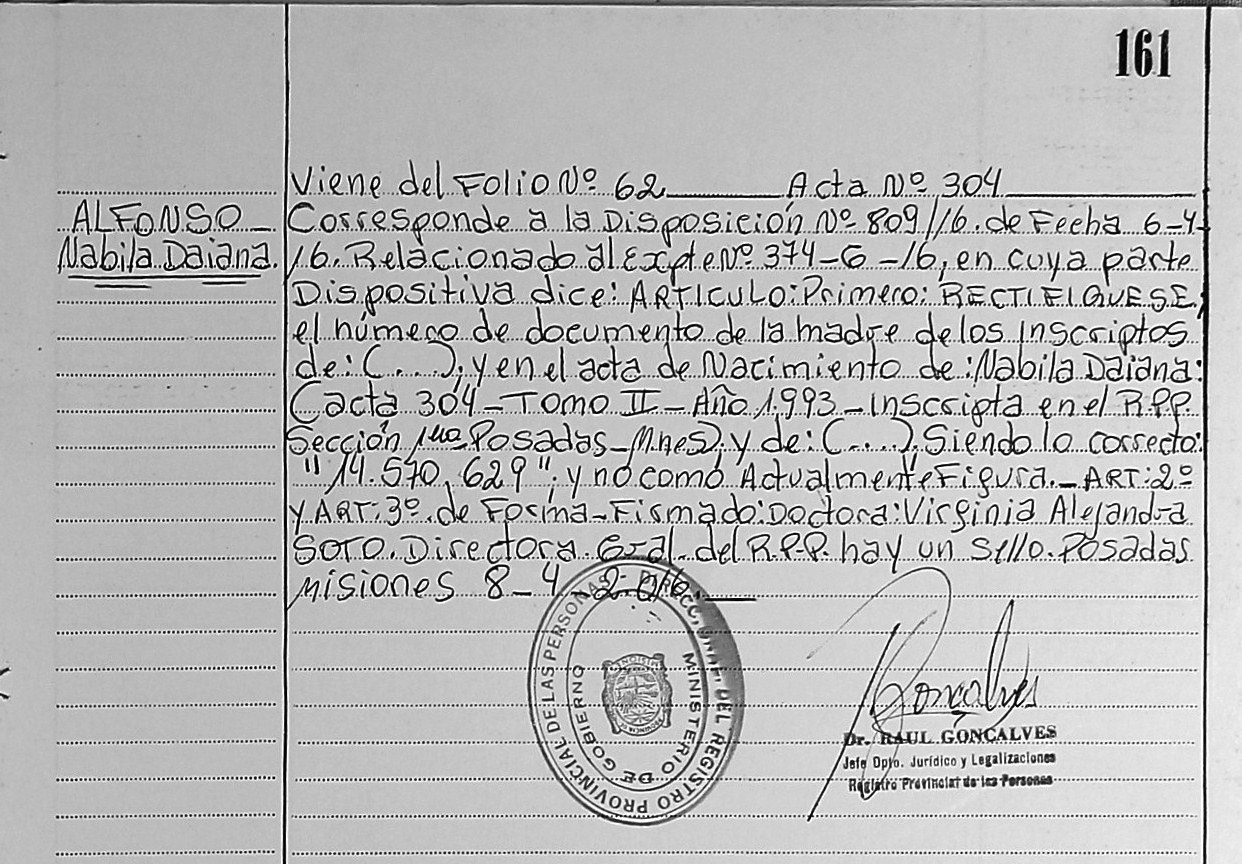 161
Viene del Folio Nº 62 Acta Nº 304
ALFONSO
Nabila Daiana.
Corresponde a la Disposición Nº 809/16. de Fecha 6-4-
16. Relacionado al Expte Nº 374-G-16, en cuya parte
Dispositiva dice: ARTICULO: Primero: RECTIFIQUESE,
el número de documento de la madre de los Inscriptos
de: (...), y en el acta de Nacimiento de: Nabila Daiana:
(acta 304 - Tomo II - Año 1.993 - Inscripta en el R.P.P.
Sección 1ra Posadas - Mnes), y de: (...). Siendo lo correcto:
"14.570.629"; y no como Actualmente Figura. - ART: 2º
y ART: 3º. de Forma - Firmado: Doctora: Virginia Alejandra
SOTO. Directora Gral. del R.P.P. hay un Sello. Posadas
Misiones 8-4-2.016.
DIRECC. GRAL. DEL REGISTRO PROVINCIAL DE LAS PERSONAS
MINISTERIO DE GOBIERNO
Goncalves
Dr. RAUL GONCALVES
Jefe Dpto. Jurídico y Legalizaciones
Registro Provincial de las Personas